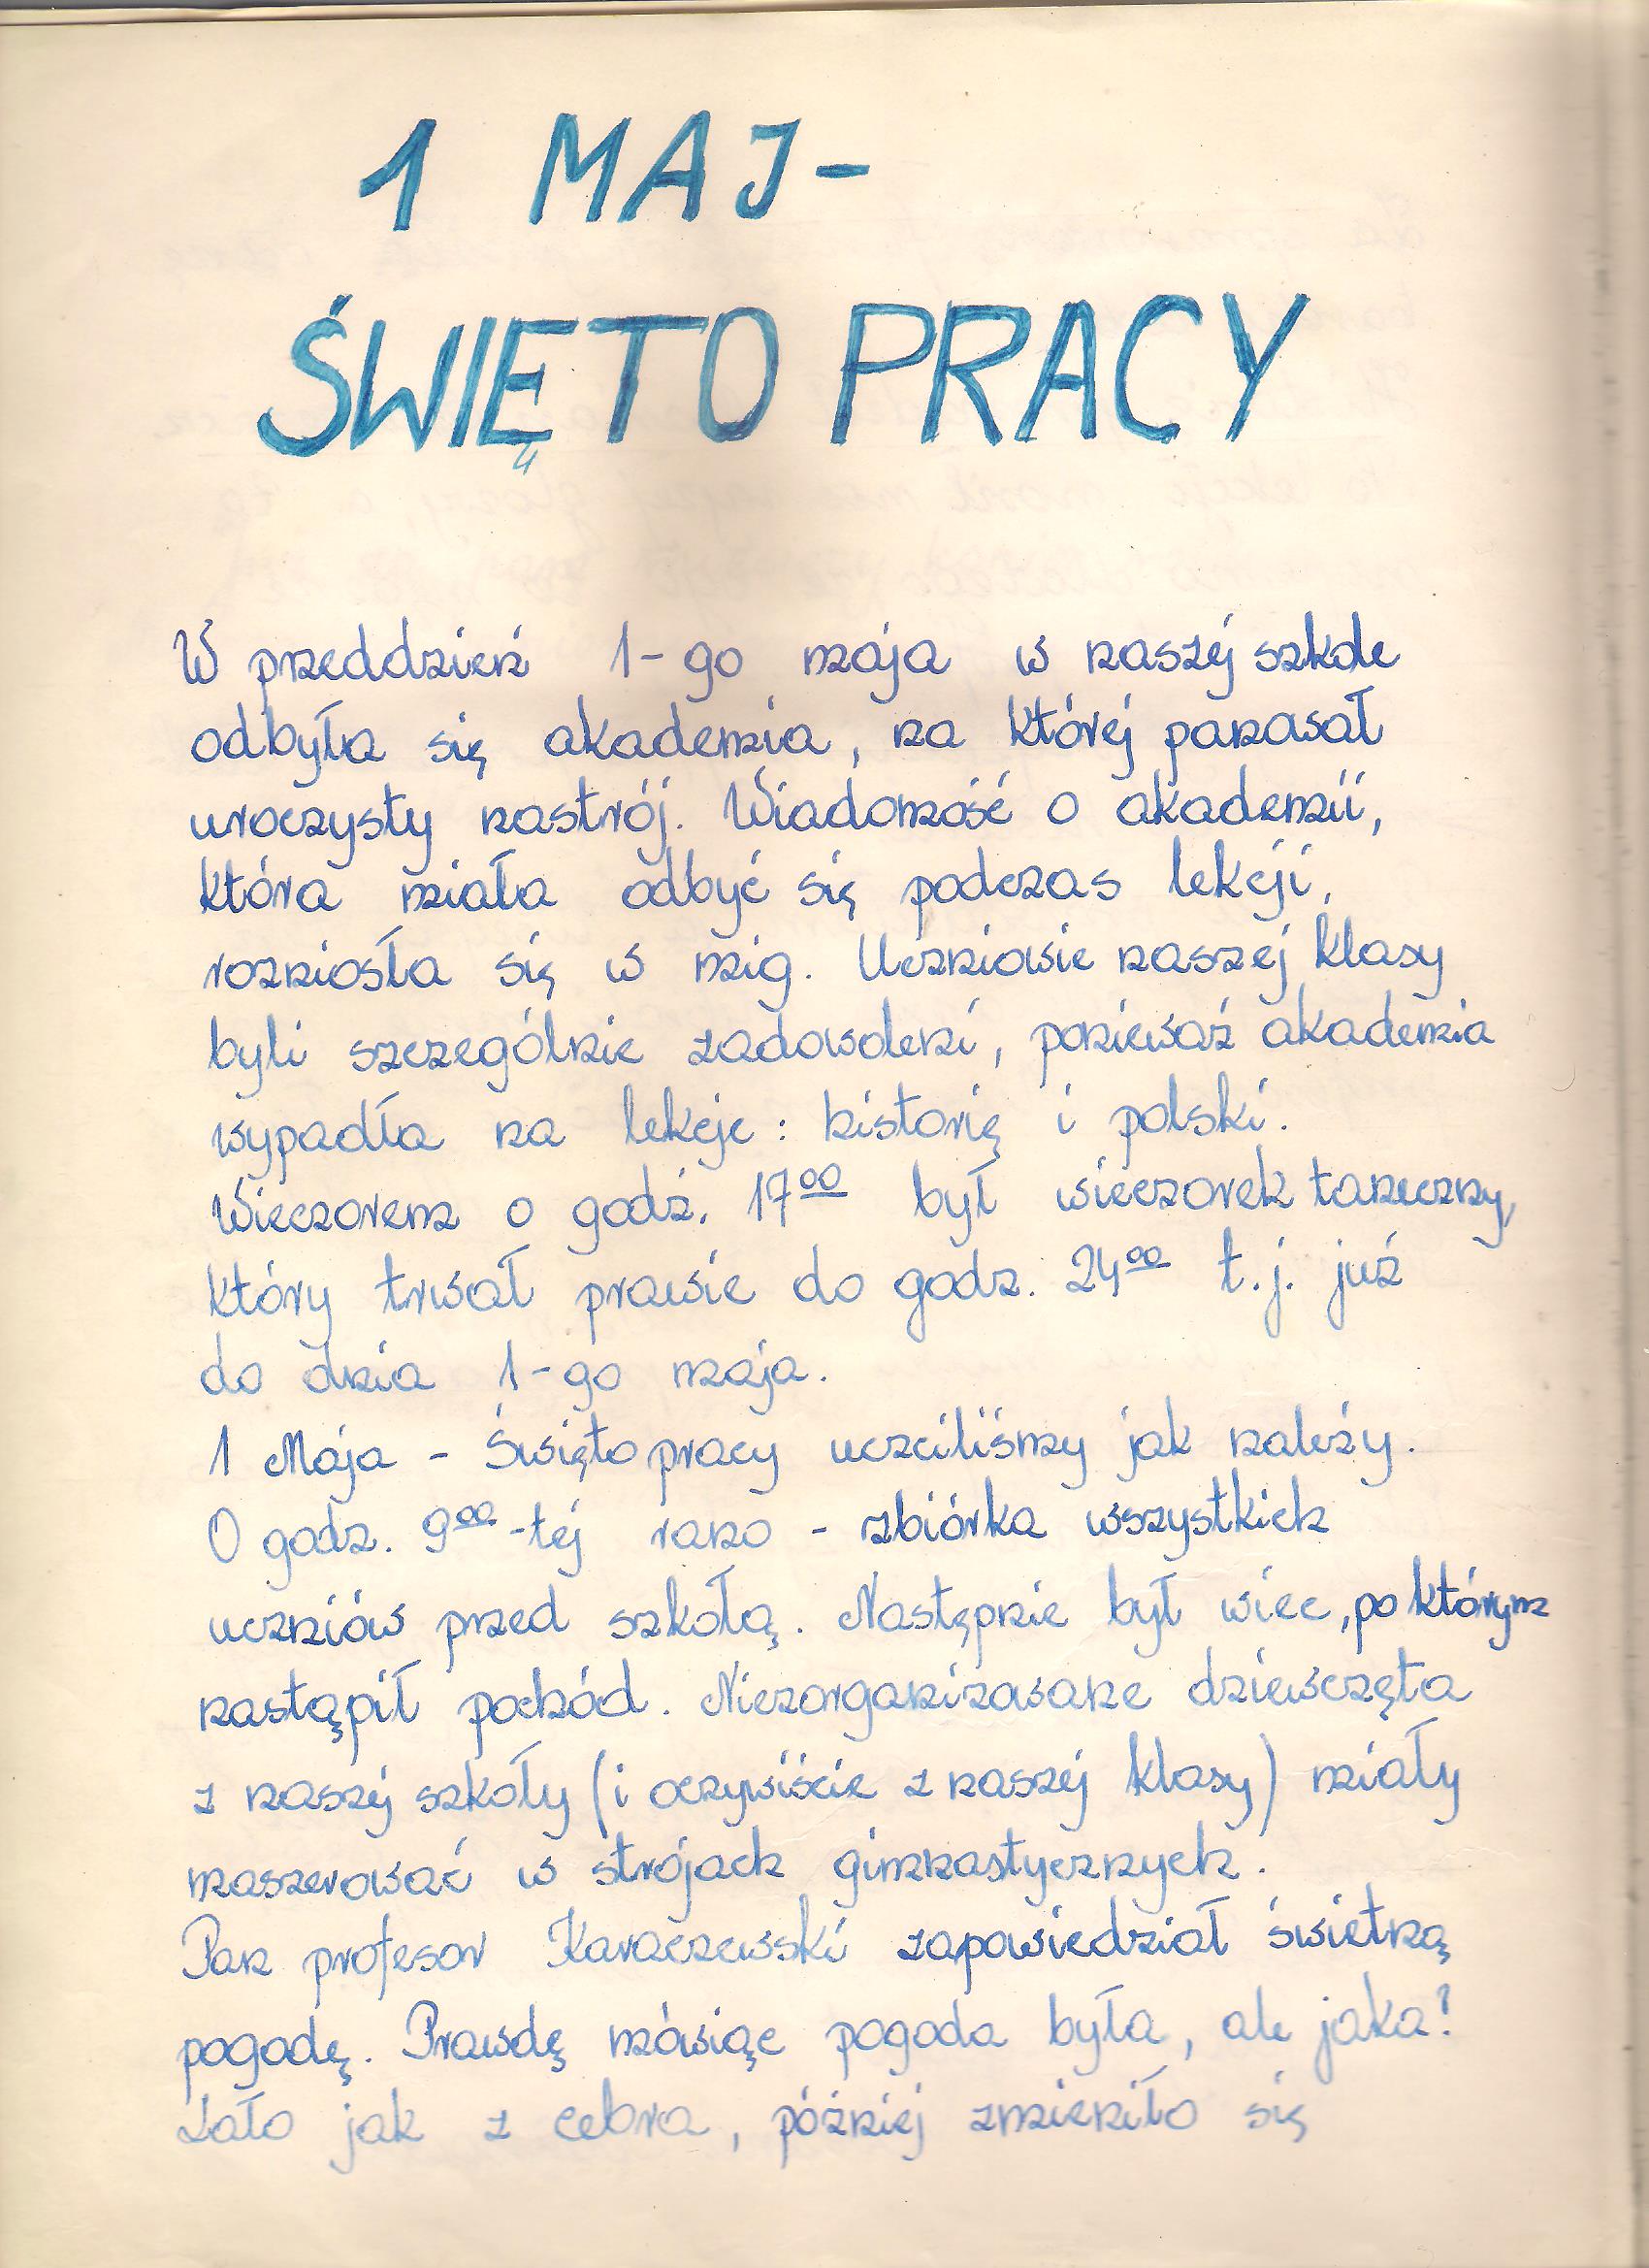 1 MAJ-
ŚWIĘTO PRACY
W przeddzień 1-go maja w naszej szkole
odbyła się akademia, na której panował
uroczysty nastrój. Wiadomość o akademii,
która miała odbyć się podczas lekcji,
rozniosła się w mig. Uczniowie naszej klasy
byli szczególnie zadowoleni, ponieważ akademia
wypadła na lekcje: historię i polski.
Wieczorem o godz. 17⁰⁰ był wieczorek taneczny,
który trwał prawie do godz. 24⁰⁰ t.j. już
do dnia 1-go maja.
1 Maja - Święto pracy uczciliśmy jak należy.
O godz. 9⁰⁰-tej rano - zbiórka wszystkich
uczniów przed szkołą. Następnie był wiec, po którym
nastąpił pochód. Niezorganizowane dziewczęta
z naszej szkoły (i oczywiście z naszej klasy) miały
maszerować w strojach gimnastycznych.
Pan profesor Karaczewski zapowiedział świetną
pogodę. Prawdę mówiąc pogoda była, ale jaka?
Lało jak z cebra, później zmieniło się